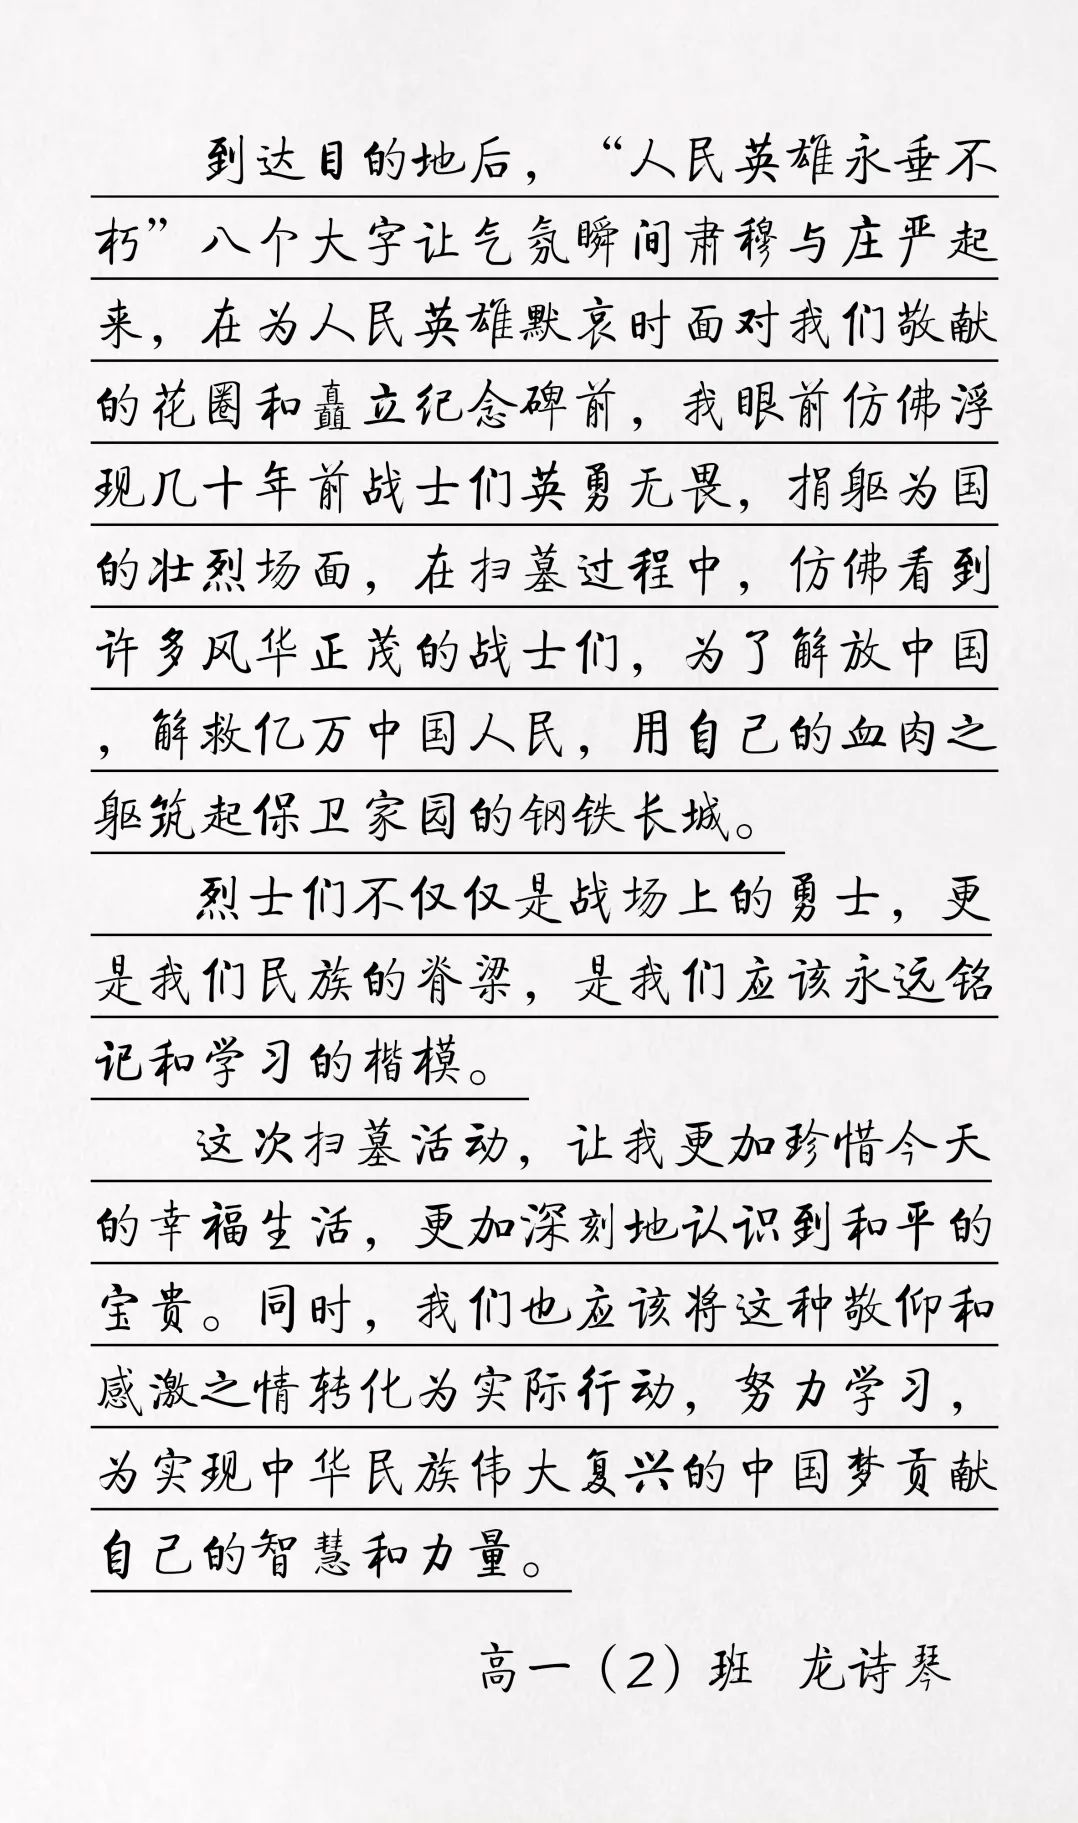 到达目的地后，“人民英雄永垂不
朽”八个大字让气氛瞬间肃穆与庄严起
来，在为人民英雄默哀时面对我们敬献
的花圈和矗立纪念碑前，我眼前仿佛浮
现几十年前战士们英勇无畏，捐躯为国
的壮烈场面，在扫墓过程中，仿佛看到
许多风华正茂的战士们，为了解放中国
，解救亿万中国人民，用自己的血肉之
躯筑起保卫家园的钢铁长城。
烈士们不仅仅是战场上的勇士，更
是我们民族的脊梁，是我们应该永远铭
记和学习的楷模。
这次扫墓活动，让我更加珍惜今天
的幸福生活，更加深刻地认识到和平的
宝贵。同时，我们也应该将这种敬仰和
感激之情转化为实际行动，努力学习，
为实现中华民族伟大复兴的中国梦贡献
自己的智慧和力量。
高一（2）班 龙诗琴